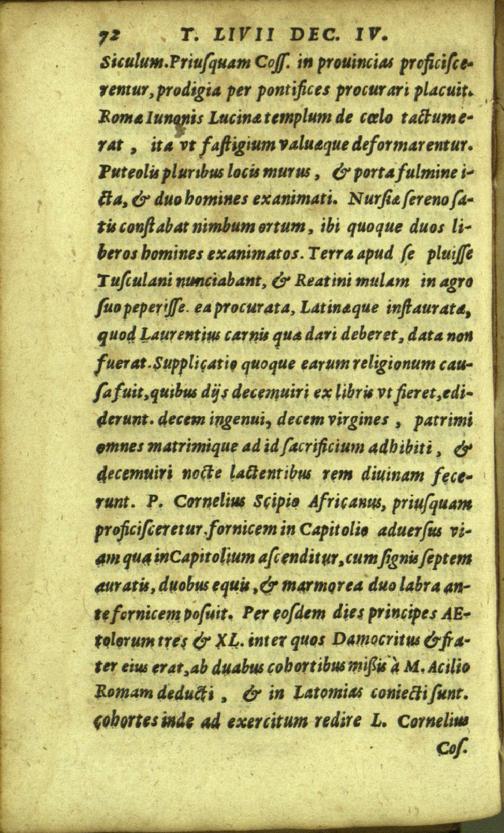 72 T. LIVII DEC. IV.
Siculum. Priuſquam Coſſ. in prouincias proficiſce-
rentur, prodigia per pontifices procurari placuit.
Romæ Iunonis Lucinæ templum de cœlo tactum e-
rat, ita vt faſtigium valuæque deformarentur.
Puteolis pluribus locis murus, & porta fulmine i-
cta, & duo homines exanimati. Nurſiæ ſereno ſa-
tis conſtabat nimbum ortum, ibi quoque duos li-
beros homines exanimatos. Terra apud ſe pluiſſe
Tuſculani nunciabant, & Reatini mulam in agro
ſuo peperiſſe. ea procurata, Latinæque inſtauratæ,
quod Laurentius carnis quæ dari deberet, data non
fuerat. Supplicatio quoque earum religionum cau-
ſa fuit, quibus dijs decemuiri ex libris vt fieret, edi-
derunt. decem ingenui, decem virgines, patrimi
omnes matrimique ad id ſacrificium adhibiti, &
decemuiri nocte lactentibus rem diuinam fece-
runt. P. Cornelius Scipio Africanus, priuſquam
proficiſceretur, fornicem in Capitolio aduerſus vi-
am qua in Capitolium aſcenditur, cum ſignis ſeptem
auratis, duobus equis, & marmorea duo labra an-
te fornicem poſuit. Per eoſdem dies principes AE-
tolorum tres & XL. inter quos Damocritus & fra-
ter eius erat, ab duabus cohortibus miſsis à M. Acilio
Romam deducti, & in Latomias coniecti ſunt.
cohortes inde ad exercitum redire L. Cornelius
Coſ.